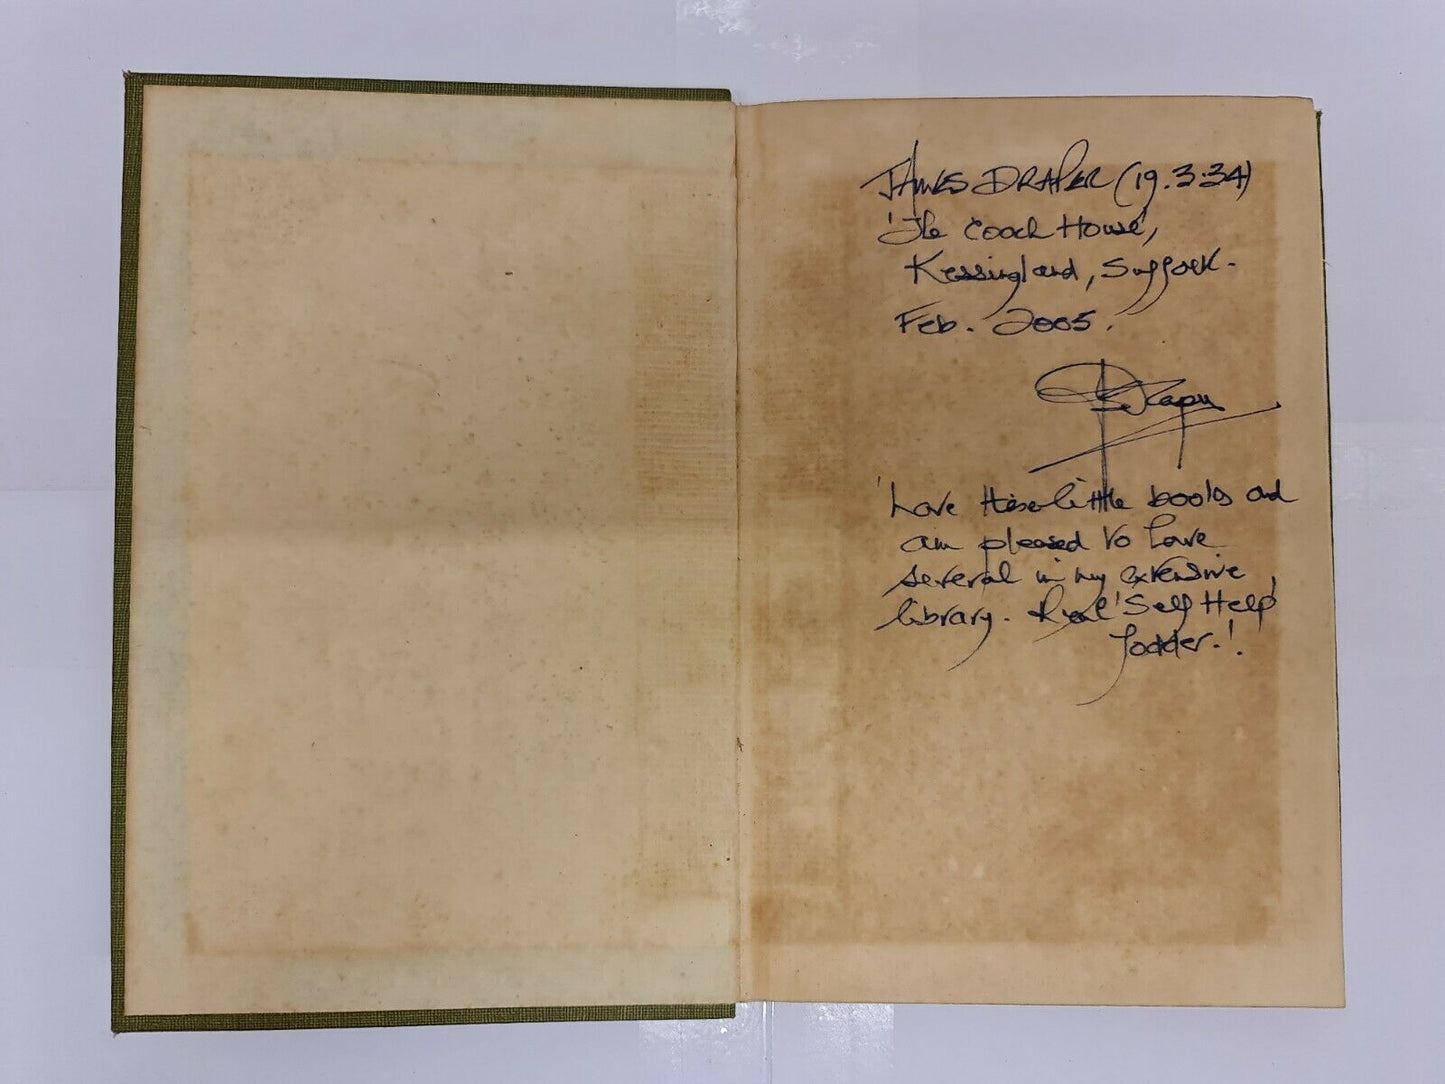 JAMES DRAPER (19.3.34)
'The Coach House',
Kessingland, Suffolk.
Feb. 2005.
Draper
'Love these little books and
am pleased to have
several in my extensive
library. Real 'Self Help'
fodder.!